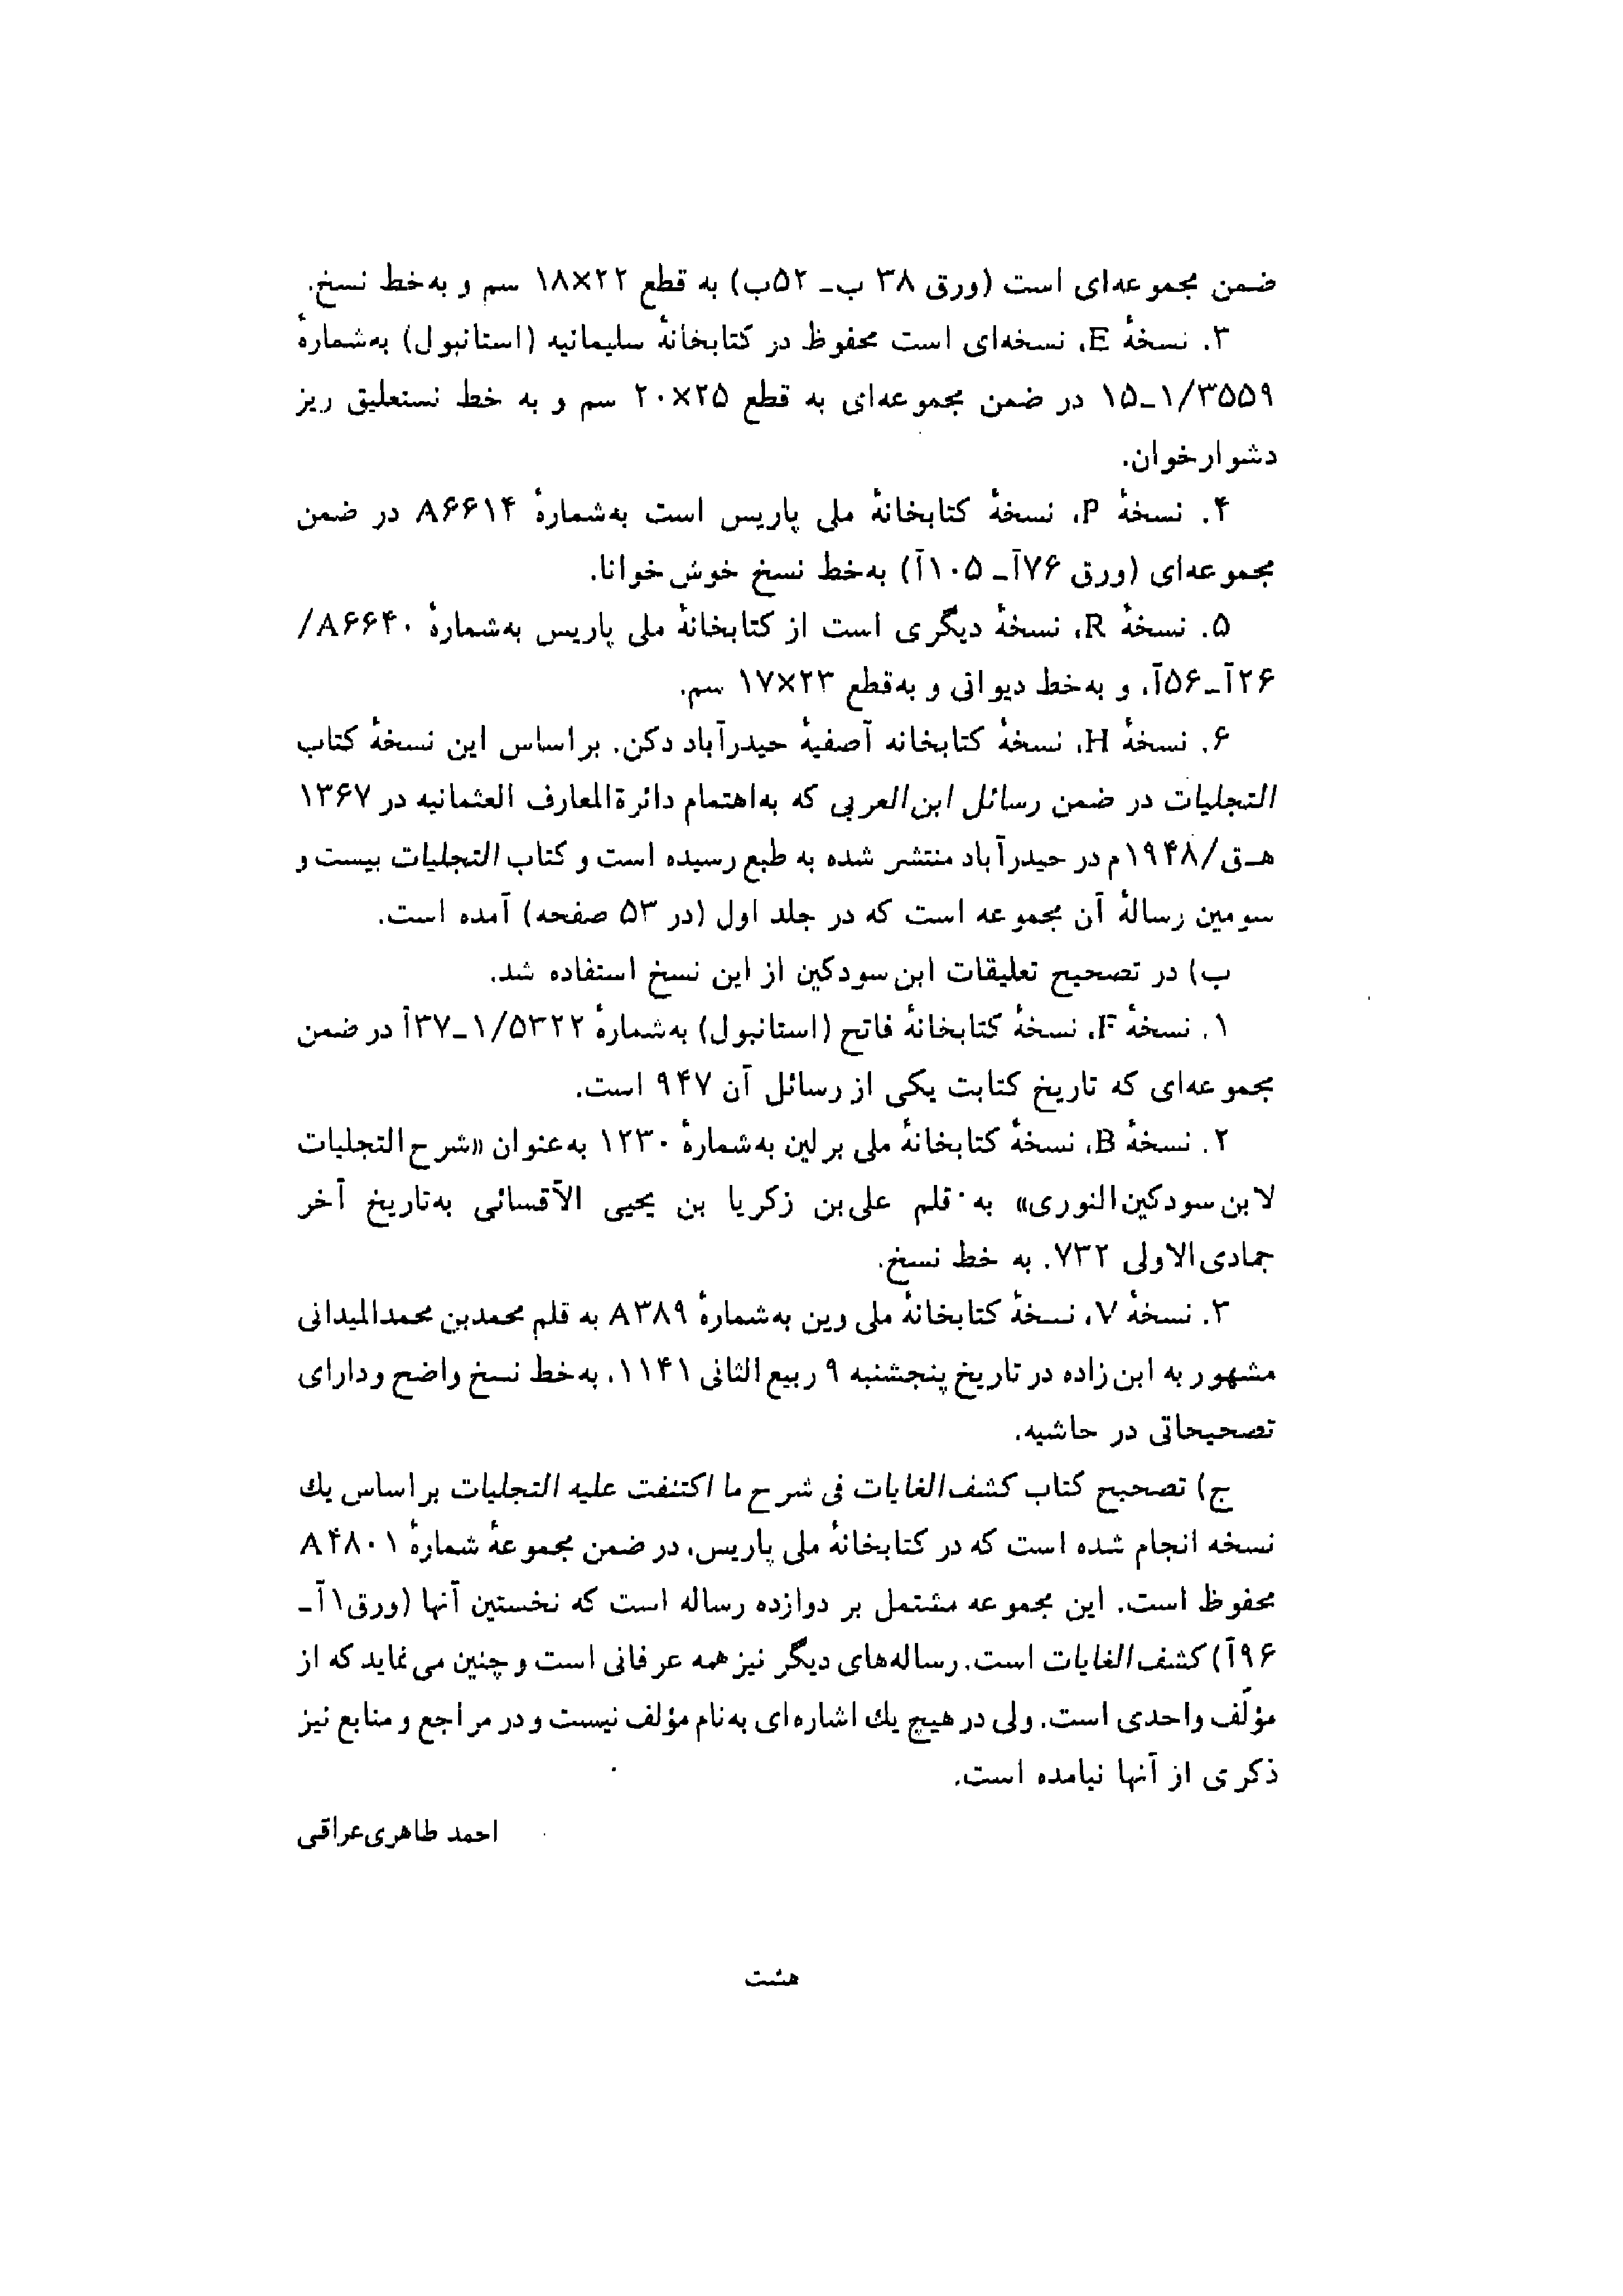 ضمن مجموعه‌ای است (ورق ۳۸ ب ـ ۵۲ب) به قطع ۲۲×۱۸ سم و به‌خط نسخ.
۳. نسخهٔ E، نسخه‌ای است محفوظ در کتابخانهٔ سلیمانیه (استانبول) به‌شمارهٔ
۱/۳۵۵۹ـ۱۵ در ضمن مجموعه‌ای به قطع ۲۵×۲۰ سم و به خط نستعلیق ریز
دشوارخوان.
۴. نسخهٔ P، نسخهٔ کتابخانهٔ ملی پاریس است به‌شمارهٔ A۶۶۱۴ در ضمن
مجموعه‌ای (ورق ۷۶آ ـ ۱۰۵آ) به‌خط نسخ خوش‌خوانا.
۵. نسخهٔ R، نسخهٔ دیگری است از کتابخانهٔ ملی پاریس به‌شمارهٔ A۶۶۴۰/
۲۶آـ۵۶آ، و به‌خط دیوانی و به‌قطع ۲۳×۱۷ سم.
۶. نسخهٔ H، نسخهٔ کتابخانه آصفیهٔ حیدرآباد دکن. براساس این نسخهٔ کتاب
التجلیات در ضمن رسائل ابن‌العربی که به‌اهتمام دائرةالمعارف العثمانیه در ۱۳۶۷
هـ‌ق/۱۹۴۸م در حیدرآباد منتشر شده به طبع رسیده است و کتاب التجلیات بیست و
سومین رسالهٔ آن مجموعه است که در جلد اول (در ۵۳ صفحه) آمده است.
ب) در تصحیح تعلیقات ابن‌سودکین از این نسخ استفاده شد.
۱. نسخهٔ F، نسخهٔ کتابخانهٔ فاتح (استانبول) به‌شمارهٔ ۱/۵۳۲۲ـ۳۷أ در ضمن
مجموعه‌ای که تاریخ کتابت یکی از رسائل آن ۹۴۷ است.
۲. نسخهٔ B، نسخهٔ کتابخانهٔ ملی برلین به‌شمارهٔ ۱۲۳۰ به‌عنوان «شرح‌التجلیات
لابن‌سودکین‌النوری» به قلم علی‌بن زکریا بن یحیی الآقسائی به‌تاریخ آخر
جمادی‌الاولی ۷۳۲. به خط نسخ.
۳. نسخهٔ V، نسخهٔ کتابخانهٔ ملی وین به‌شمارهٔ A۳۸۹ به قلم محمدبن محمدالمیدانی
مشهور به ابن‌زاده در تاریخ پنجشنبه ۹ ربیع‌الثانی ۱۱۴۱، به‌خط نسخ واضح و دارای
تصحیحاتی در حاشیه.
ج) تصحیح کتاب کشف‌الغایات فی شرح ما اکتنفت علیه التجلیات براساس یك
نسخه انجام شده است که در کتابخانهٔ ملی پاریس، در ضمن مجموعهٔ شمارهٔ A۴۸۰۱
محفوظ است. این مجموعه مشتمل بر دوازده رساله است که نخستین آنها (ورق۱آـ
۹۶آ) کشف‌الغایات است. رساله‌های دیگر نیز همه عرفانی است و چنین می‌نماید که از
مؤلّف واحدی است. ولی در هیچ یك اشاره‌ای به‌نام مؤلف نیست و در مراجع و منابع نیز
ذکری از آنها نیامده است.
احمد طاهری‌عراقی
هشت